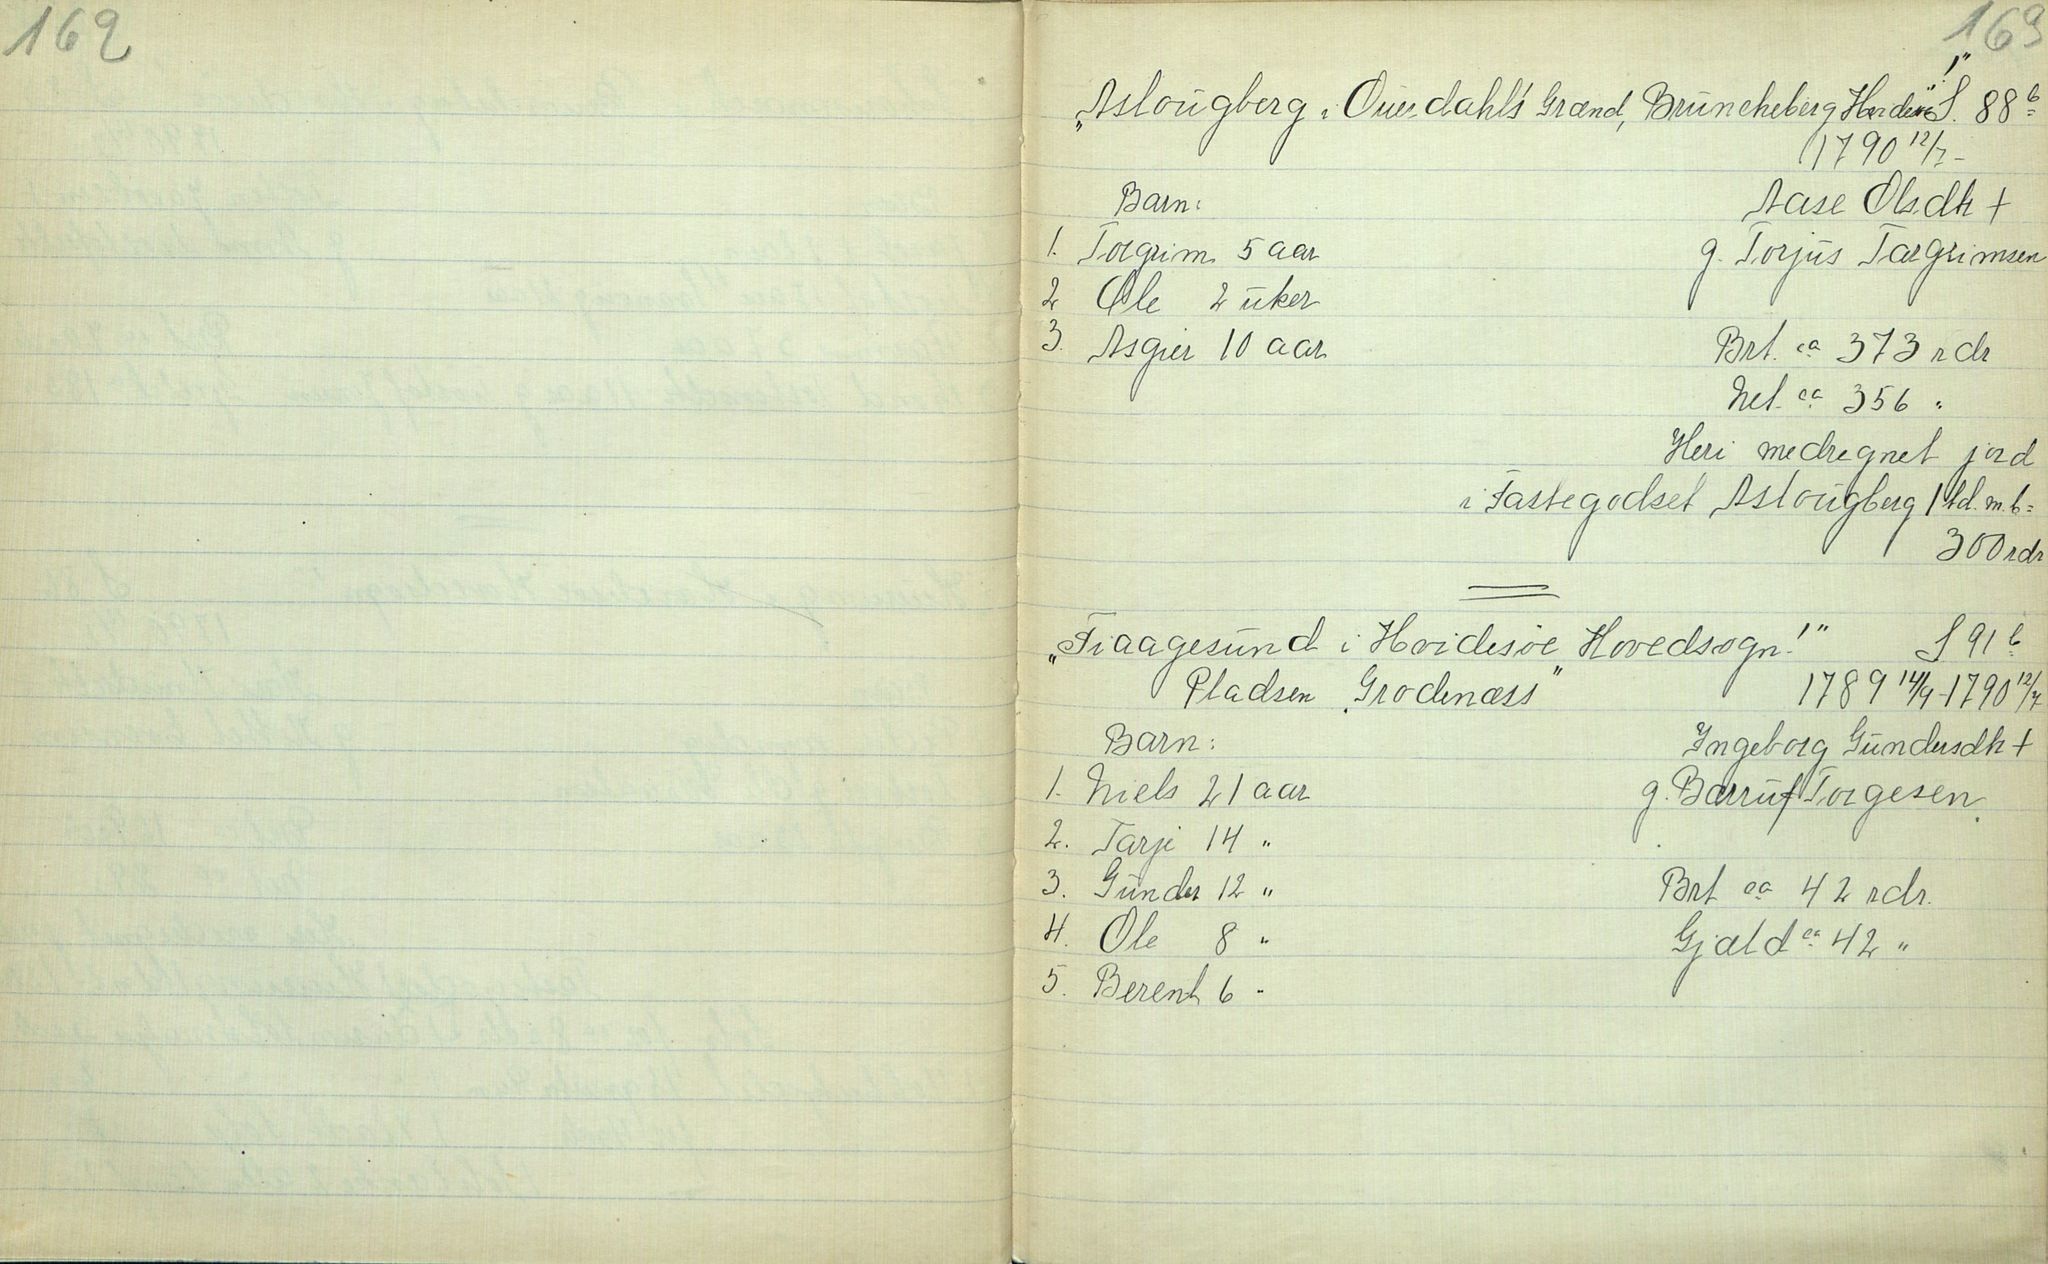 162
163
„Aslougberg i Ouersdahl's Grænd, Bruncheberg !" S. 88 b
1790 12/7 -
Barn: Aase Olsdtr +
1. Torgrim 5 aar g. Torjus Targrimsen
2 Ole 2 uker
3. Asgier 10 aar Brt. ca 373 rdr
Net. ca 356 "
Heri medregnet jord
i Fastegodset Aslougberg 1 td. m. b =
300 rdr
„Fiaagesund i Hvidesøe Hovedsogn!" S 91 b
Pladsen Grodenæss" 1789 14/9 - 1790 12/7
Barn: Ingeborg Gundersdtr +
1. Niels 21 aar g. Torgesen
2. Tarje 14 "
3. Gunder 12 " Brt ca 42 rdr.
4. Ole 8 " Gjæld ca 42 "
5. Berent 6 "